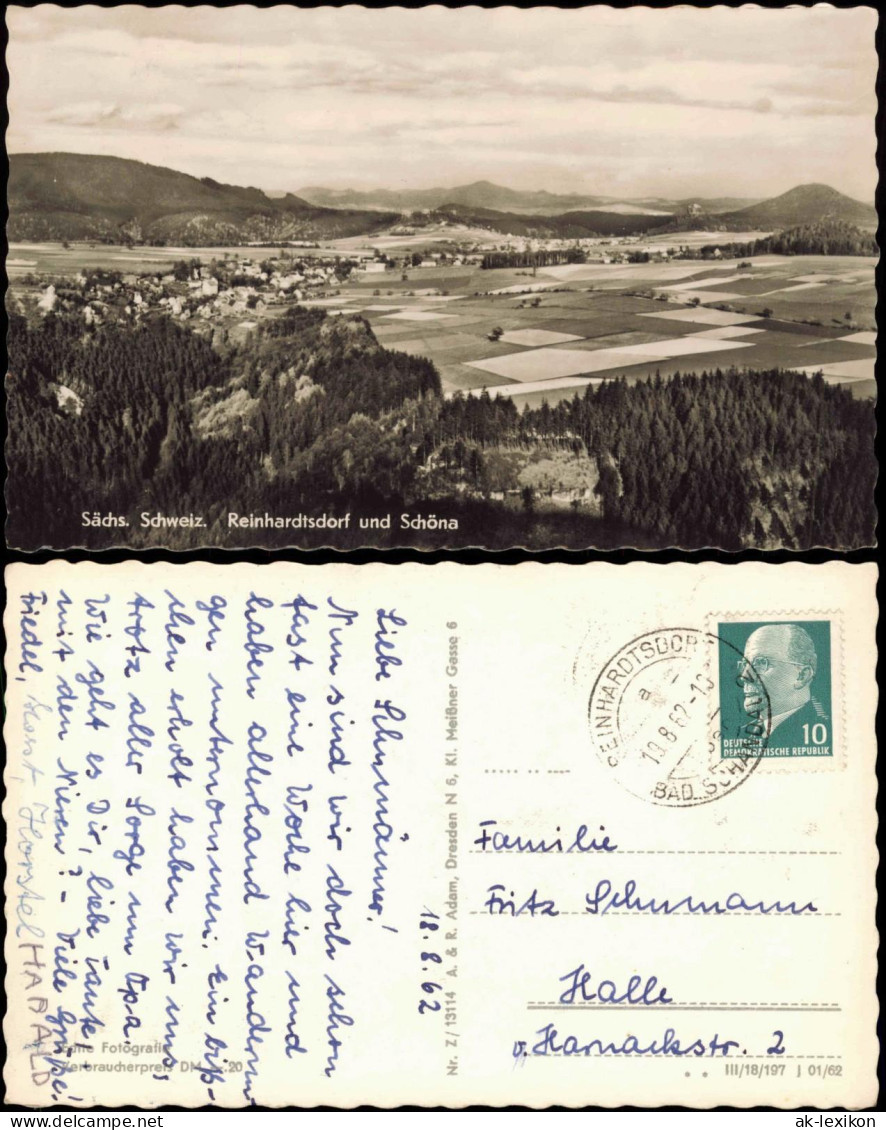 Sächs. Schweiz. Reinhardtsdorf und Schöna
18.8.62
Liebe Schumänner!
Nun sind wir doch schon
fast eine Woche hier und
haben allerhand Wanderun-
gen unternommen. Ein biß-
chen erholt haben wir uns,
trotz aller Sorge um Opa.
Wie geht es Dir, liebe Tante,
mit den Nieren? - Viele Grüße!
Friedel, Horst, Horstel HARALD
Echte Fotografie
Verbraucherpreis DM 20
Nr. Z/13114 A. & R. Adam, Dresden N 6, Kl. Meißner Gasse 6
REINHARDTSDORF
a
19.8.62-10
BAD SCHANDAU 2
DEUTSCHE
DEMOKRATISCHE REPUBLIK
10
Familie
Fritz Schumann
Halle
v. Harnackstr. 2
III/18/197 J 01/62
ak-lexikon